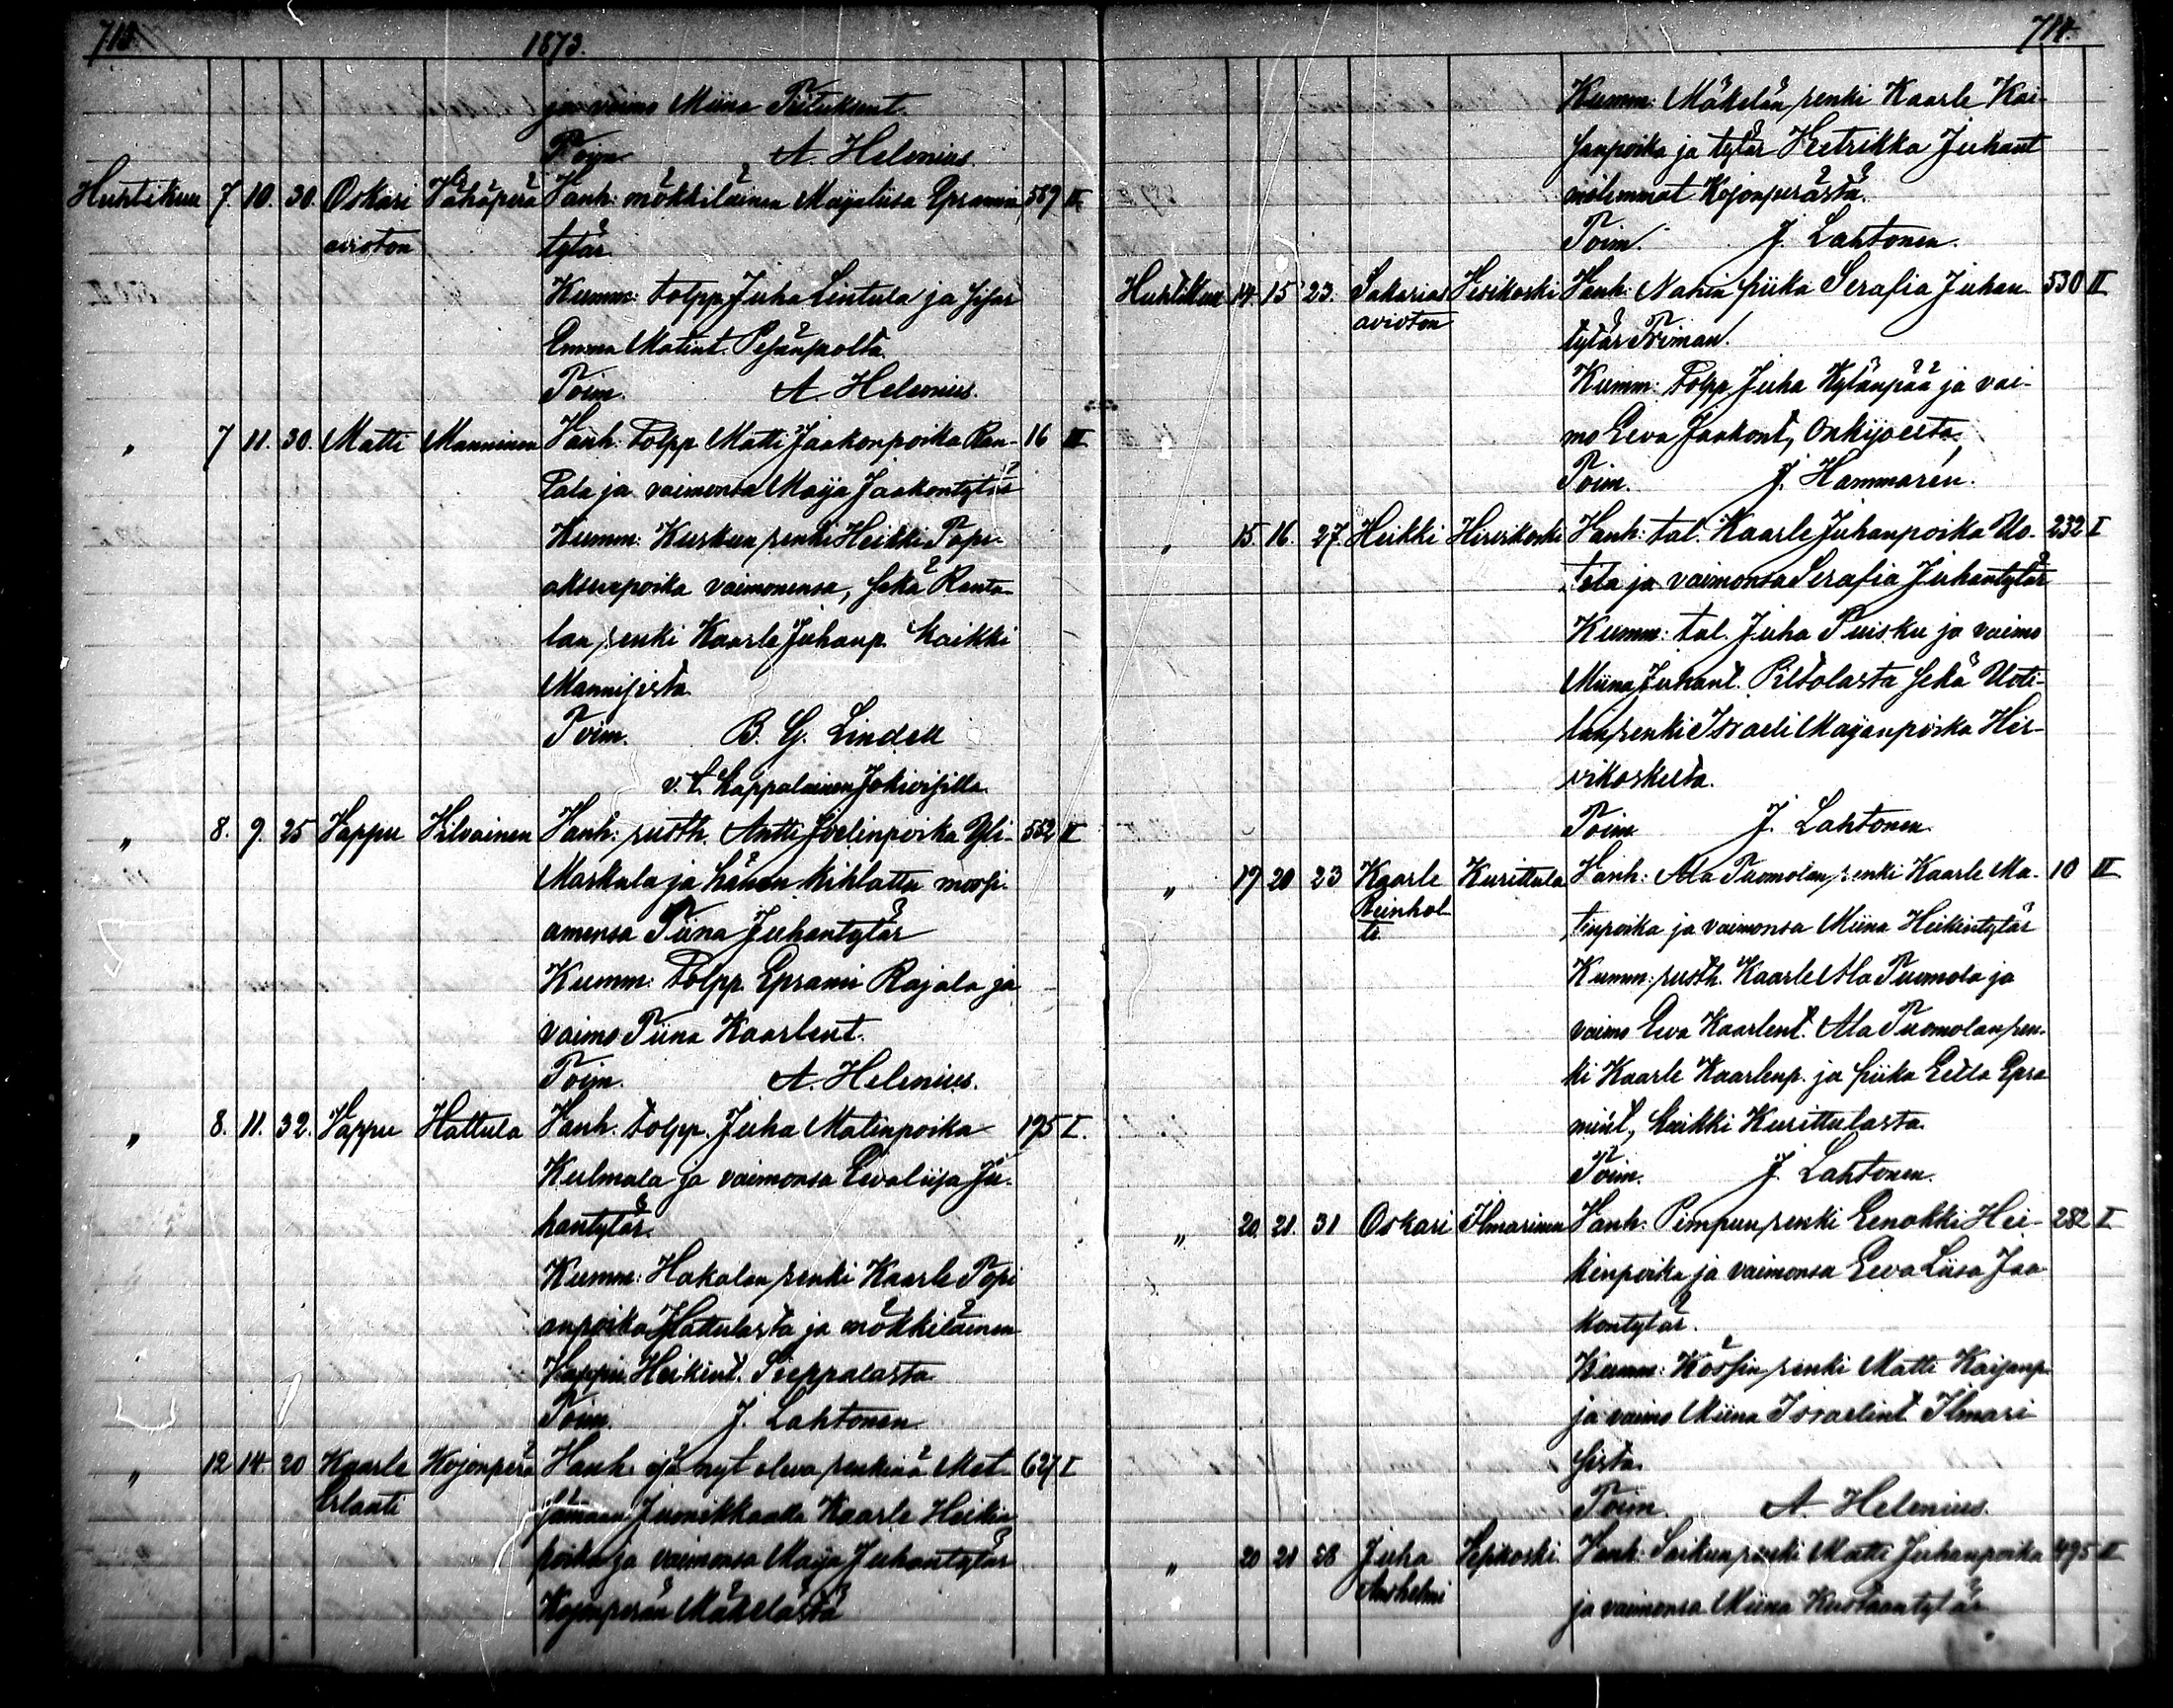 713.
1873.
ja vaimo Miina Titukunt.
Toim. A. Helenius
Huhtikuu 7. 10. 30. Oskari Vähäperä Vanh: mökkiläinen Maijaliisa Epramin 589 II
avioton tytär
Kumm: tolpp. Juha Lintula ja sisar
Emma Matint. Pesänpolta
Toim. A. Helenius.
„ 7 11. 30. Matti Manninen Vanh: Tolpp Matti Jaakonpoika Ran- 16 III
tala ja vaimonsa Maija Jaakontytär
Kumm: Kuskun renki Heikki Topi-
aksenpoika vaimonensa, sekä Ranta-
lan renki Kaarle Juhanp. kaikki
Mannisista
Toim. B. G. Lindell
v. t. kappalainen Jokioisilla.
„ 8. 9. 25 Vappu Hilvainen Vanh: rusth. Antti Joelinpoika Yli- 552 II
Markula ja hänen kihlattu morsi-
amensa Tiina Juhantytär
Kumm: Tolpp. Eprami Rajala ja
vaimo Tiina Kaarlent.
Toim. A. Helenius.
„ 8. 11. 32. Vappu Hattula Vanh. tolpp. Juha Matinpoika 195 I.
Kulmala ja vaimonsa Eevaliisa Ju-
hantytär.
Kumm: Hakalan renki Kaarle Topi
anpoika Hattulasta ja mökkiläinen
Vappu Heikint. Sieppalasta
Toim. J. Lahtonen
„ 12 14 20 Kaarle Kojonperä Vanh. nyt oleva renkinä Met- 627 I
Erlanti Kaarle Heikin
poika ja vaimonsa Maija Juhantytär
Kojonperän Mäkelästä
714.
Kumm: Mäkelän renki Kaarle Kai-
sanpoika ja tytär Hetrikka Juhant
molemmat Kojonperästä.
Toim. J. Lahtonen.
Huhtikuu 14. 15 23. Sakarias Hirsikoski Vanh: Nahin piika Serafia Juhan- 530 II
avioton tytär Friman.
Kumm: Tolpp. Juha Kylänpää ja vai-
mo Eeva Jaakont, Onkijoelta.
Toim. J. Hammarén.
„ 15. 16. 27. Heikki Hirvikoski Vanh: tal. Kaarle Juhanpoika Uo- 232 I
tila ja vaimonsa Serafia Juhantytär
Kumm: tal. Juha Puisku ja vaimo
Miina Juhant. Piltolasta sekä Uoti-
lan renki Israeli Maijanpoika Hir-
vikoskelta.
Toim J. Lahtonen.
„ 19 20 23 Kaarle Kurittula Vanh: Ala Tuomolan renki Kaarle Ma- 10 III
Reinhol-
ti tinpoika ja vaimonsa Miina Heikintytär
Kumm: rusth. Kaarle Ala Tuomola ja
vaimo Eeva Kaarlent. Ala Tuomolan ren-
ki Kaarle Kaarlenp. ja piika Eella Epra
mint, kaikki Kurittulasta.
Toim. J. Lahtonen.
„ 20. 21. 31 Oskari Ilmarinen Vanh: Pimpun renki Eenokki Hei- 282 I
kinpoika ja vaimonsa Eeva Liisa Jaa
kontytär.
Kumm: Kössin renki Matti Kaijanp.
ja vaimo Miina Israelint Ilmari
sista.
Toim. A. Helenius.
„ 20 21 28 Juha Vesikoski Vanh: Saikun renki Matti Juhanpoika 495 II
Anshelmi ja vaimonsa Miina Kustaantytär